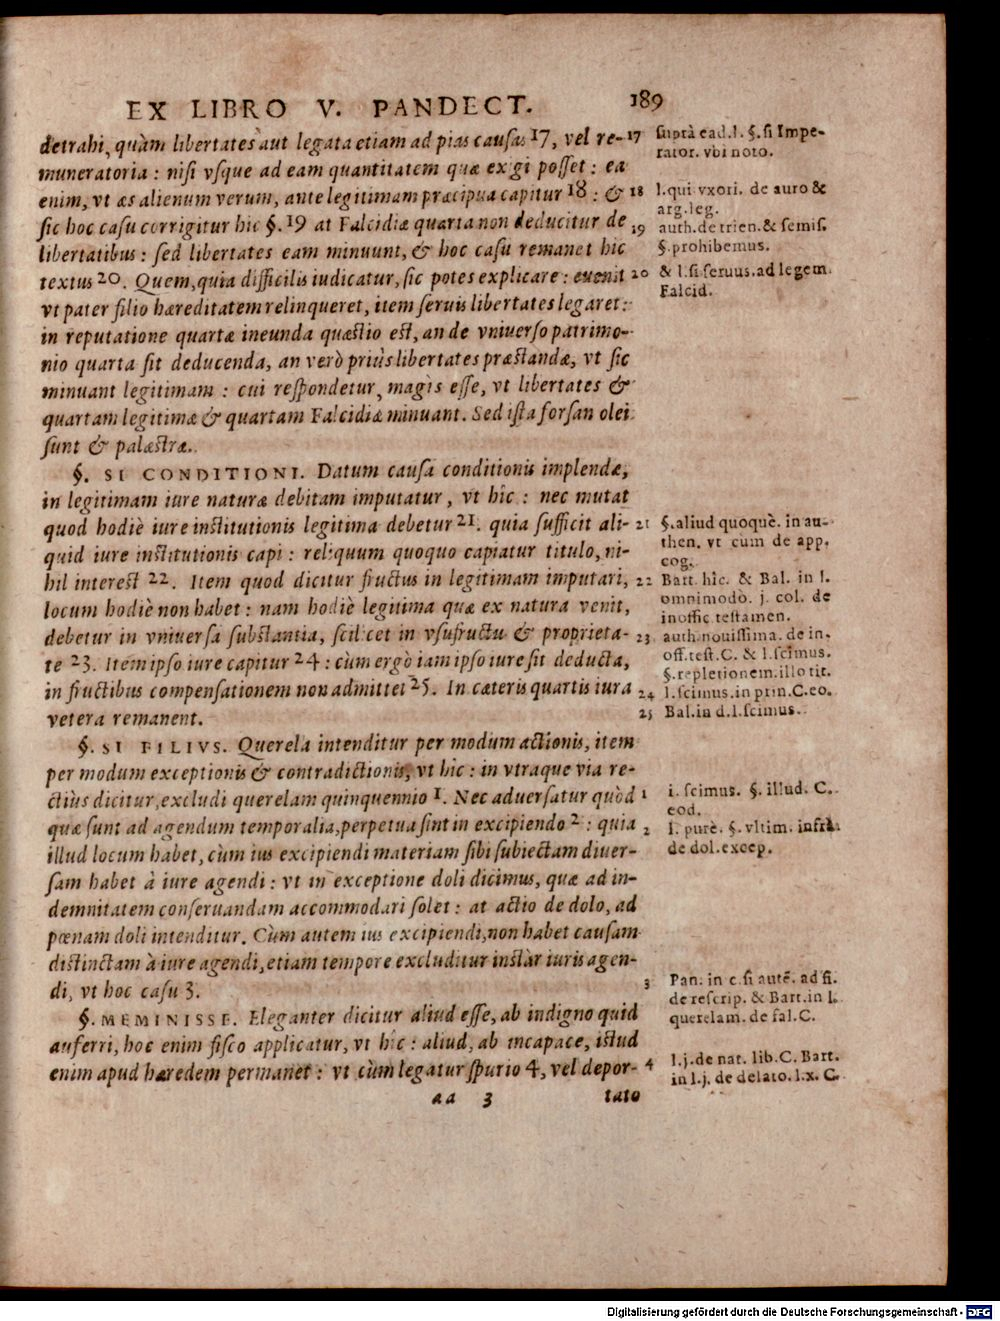 EX LIBRO V. PANDECT. 189
detrahi, quàm libertates aut legata etiam ad pias causas 17, vel re-
muneratoria : nisi vsque ad eam quantitatem quæ exigi posset : ea
enim, vt æs alienum verum, ante legitimam præcipua capitur 18 : &
sic hoc casu corrigitur hic §. 19 at Falcidiæ quarta non deducitur de
libertatibus : sed libertates eam minuunt, & hoc casu remanet hic
textus 20. Quem, quia difficilis iudicatur, sic potes explicare : euenit
vt pater filio hæreditatem relinqueret, item seruis libertates legaret :
in reputatione quartæ ineunda quæstio est, an de vniuerso patrimo-
nio quarta sit deducenda, an verò priùs libertates præstandæ, vt sic
minuant legitimam : cui respondetur, magis esse, vt libertates &
quartam legitimæ & quartam Falcidiæ minuant. Sed ista forsan olei
sunt & palæstræ.
§. SI CONDITIONI. Datum causa conditionis implendæ,
in legitimam iure naturæ debitam imputatur, vt hîc : nec mutat
quod hodiè iure institutionis legitima debetur 21. quia sufficit ali-
quid iure institutionis capi : reliquum quoquo capiatur titulo, ni-
hil interest 22. Item quod dicitur fructus in legitimam imputari,
locum hodiè non habet : nam hodiè legitima quæ ex natura venit,
debetur in vniuersa substantia, scilicet in vsufructu & proprieta-
te 23. Item ipso iure capitur 24 : cùm ergò iam ipso iure sit deducta,
in fructibus compensationem non admittet 25. In cæteris quartis iura
vetera remanent.
§. SI FILIVS. Querela intenditur per modum actionis, item
per modum exceptionis & contradictionis, vt hîc : in vtraque via re-
ctiùs dicitur, excludi querelam quinquennio 1. Nec aduersatur quòd
quæ sunt ad agendum temporalia, perpetua sint in excipiendo 2 : quia
illud locum habet, cùm ius excipiendi materiam sibi subiectam diuer-
sam habet à iure agendi : vt in exceptione doli dicimus, quæ ad in-
demnitatem conseruandam accommodari solet : at actio de dolo, ad
pœnam doli intenditur. Cùm autem ius excipiendi, non habet causam
distinctam à iure agendi, etiam tempore excluditur instàr iuris agen-
di, vt hoc casu 3.
§. MEMINISSE. Eleganter dicitur aliud esse, ab indigno quid
auferri, hoc enim fisco applicatur, vt hîc : aliud, ab incapace, istud
enim apud hæredem permanet : vt cùm legatur spurio 4, vel depor-
aa 3 tato
17 suprà ead. l. §. si Impe-
rator. vbi noto.
18 l. qui vxori. de auro &
arg. leg.
19 auth. de trien. & semis.
§. prohibemus.
20 & l. si seruus. ad legem
Falcid.
21 §. aliud quoquè. in au-
then. vt cum de app.
cog.
22 Bart. hîc. & Bal. in l.
omnimodò. j. col. de
inoffic. testamen.
23 auth. nouissima. de in.
off. test. C. & l. scimus.
§. repletionem. illo tit.
24 l. scimus. in prin. C. eo.
25 Bal. in d. l. scimus.
1 i. scimus. §. illud. C.
eod.
2 l. purè. §. vltim. infrà.
de dol. excep.
3 Pan. in c. si autē. ad fi.
de rescrip. & Bart. in l.
querelam. de fal. C.
4 l. j. de nat. lib. C. Bart.
in l. j. de delato. l. x. C.
Digitalisierung gefördert durch die Deutsche Forschungsgemeinschaft - DFG